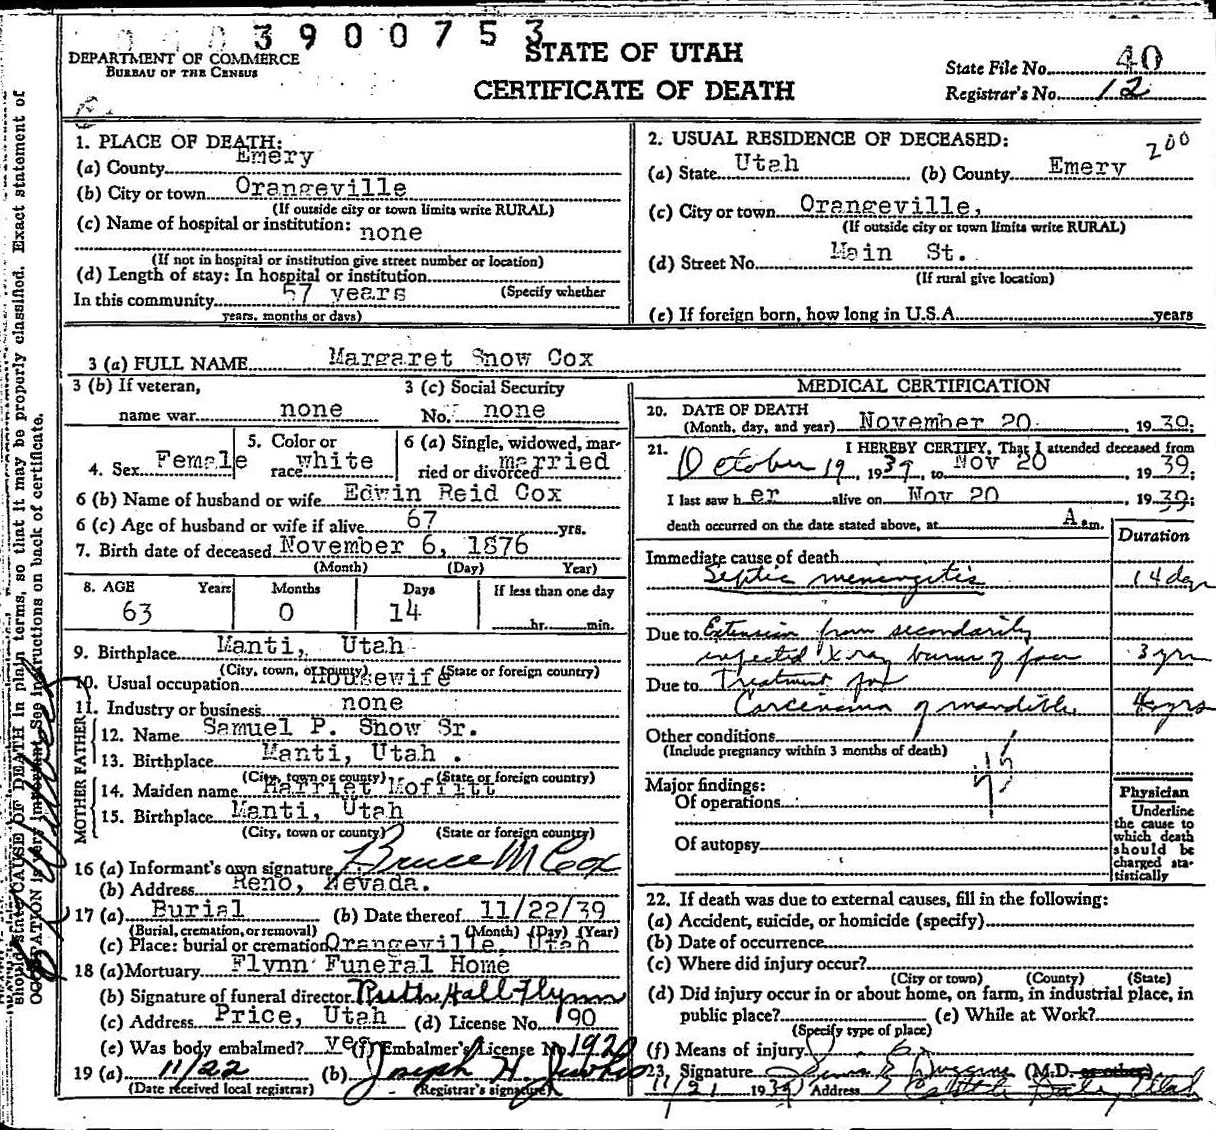 3900753
DEPARTMENT OF COMMERCE
BUREAU OF THE CENSUS
STATE OF UTAH
CERTIFICATE OF DEATH
State File No. 40
Registrar's No. 12
1. PLACE OF DEATH:
(a) County Emery
(b) City or town Orangeville
(If outside city or town limits write RURAL)
(c) Name of hospital or institution: none
(If not in hospital or institution give street number or location)
(d) Length of stay: In hospital or institution
In this community 57 years (Specify whether
years, months or days)
2. USUAL RESIDENCE OF DECEASED: 200
(a) State Utah (b) County Emery
(c) City or town Orangeville,
(If outside city or town limits write RURAL)
(d) Street No. Main St.
(If rural give location)
(e) If foreign born, how long in U.S.A. years
3 (a) FULL NAME Margaret Snow Cox
3 (b) If veteran,
name war none
3 (c) Social Security
No. none
4. Sex Female
5. Color or
race white
6 (a) Single, widowed, mar-
ried or divorced married
6 (b) Name of husband or wife Edwin Reid Cox
6 (c) Age of husband or wife if alive 67 yrs.
7. Birth date of deceased November 6, 1876
(Month) (Day) Year)
8. AGE Years Months Days If less than one day
63 0 14 hr. min.
9. Birthplace Manti, Utah
(City, town, or county) (State or foreign country)
10. Usual occupation Housewife
11. Industry or business none
FATHER
12. Name Samuel P. Snow Sr.
13. Birthplace Manti, Utah .
(City, town or county) (State or foreign country)
MOTHER
14. Maiden name Harriet Moffitt
15. Birthplace Manti, Utah
(City, town or county) (State or foreign country)
16 (a) Informant's own signature Bruce M Cox
(b) Address Reno, Nevada.
17 (a) Burial (b) Date thereof 11/22/39
(Burial, cremation, or removal) (Month) (Day) (Year)
(c) Place: burial or cremation Orangeville, Utah
18 (a) Mortuary Flynn Funeral Home
(b) Signature of funeral director Ruth Hall Flynn
(c) Address Price, Utah (d) License No. 190
(e) Was body embalmed? yes (f) Embalmer's License No.
19 (a) 11/22 (b) Joseph H.
(Date received local registrar) (Registrar's signature)
MEDICAL CERTIFICATION
20. DATE OF DEATH
(Month, day, and year) November 20 , 1939.
21. I HEREBY CERTIFY, That I attended deceased from
October 19, 1939, to Nov 20 , 1939;
I last saw her alive on Nov 20 , 1939;
death occurred on the date stated above, at A.m.
Duration
Immediate cause of death
Septic menengitis 14 day
Due to Extension from secondarily
infected X ray burns of face 3 yrs
Due to Treatment for
Carcenoma of mandible 4 yrs
Other conditions
(Include pregnancy within 3 months of death)
45
Major findings:
Of operations
Of autopsy
Physician
Underline
the cause to
which death
should be
charged sta-
tistically
22. If death was due to external causes, fill in the following:
(a) Accident, suicide, or homicide (specify)
(b) Date of occurrence
(c) Where did injury occur?
(City or town) (County) (State)
(d) Did injury occur in or about home, on farm, in industrial place, in
public place? (e) While at Work?
(Specify type of place)
(f) Means of injury
23. Signature (M.D. or other)
11/21 1939 Address Castle Dale, Utah
should state CAUSE OF DEATH in plain terms, so that it may be properly classified. Exact statement of
OCCUPATION is very important. See instructions on back of certificate.